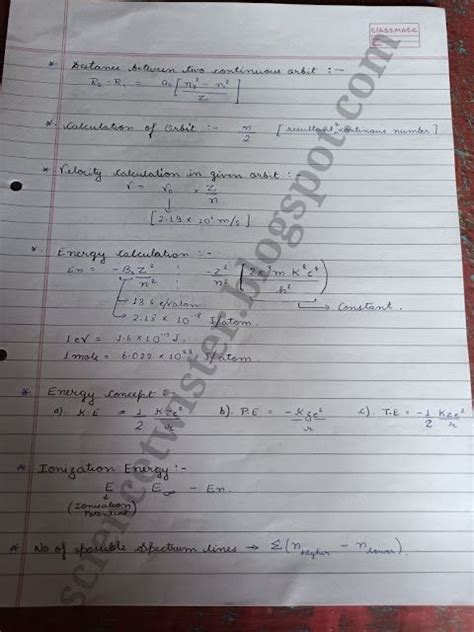 CLASSMATE
* Distance between two continuous orbit :-
R₂ - R₁ = a₀ [ (n₂² - n₁²) / Z ]
* Calculation of Orbit :- n/2 [ continuous number ]
* Velocity calculation in given orbit :-
v = v₀ × Z/n
[ 2.19 × 10⁶ m/s ]
* Energy calculation :-
En = -B₀ Z²/n² : -Z²/n² ( 2π² m K² e⁴ / h² )
→ 13.6 ev/atom → Constant.
→ 2.18 × 10⁻¹⁸ J/atom.
1 ev = 1.6 × 10⁻¹⁹ J.
1 mole = 6.022 × 10²³ J/atom.
* Energy concept :-
a). K.E = 1/2 KZe²/r b). P.E = -KZe²/r c). T.E = -1/2 KZe²/r
* Ionization Energy :-
E E∞ - En.
(Ionisation
Potential)
* No of possible Spectrum lines → Σ(n higher - n lower).
sciencetwister.blogspot.com